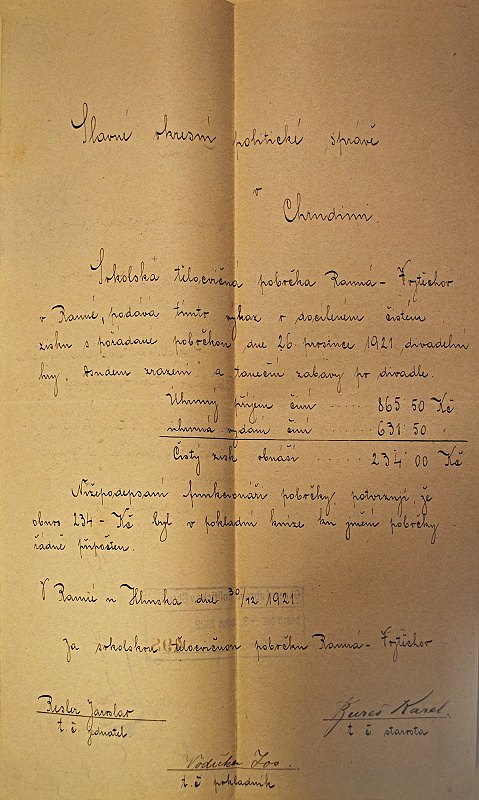 Slavné okresní politické správě
v
Chrudimi.
Sokolská tělocvičná pobočka Ranná - Vojtěchov
v Ranné, podává tímto výkaz o docíleném čistém
zisku s pořádané pobočkou dne 26. prosince 1921 divadelní
hry, Osudem zrazení a taneční zábavy po divadle.
Úhrnný příjem činí ...... 865 50 Kč
úhrnná vydání činí ...... 631 50 "
Čistý zisk obnáší ...... 234 00 Kč
Nížepodepsaní funkcionáři pobočky potvrzují, že
obnos 234 - Kč byl v pokladní knize ku jmění pobočky
řádně připočten.
V Ranné u Hlinska dne 30/12 1921
Za sokolskou tělocvičnou pobočku Ranná - Vojtěchov
Resler Jaroslav
t. č. jednatel.
Bureš Karel.
t. č. starosta
Vodička Jos.
t. č. pokladník